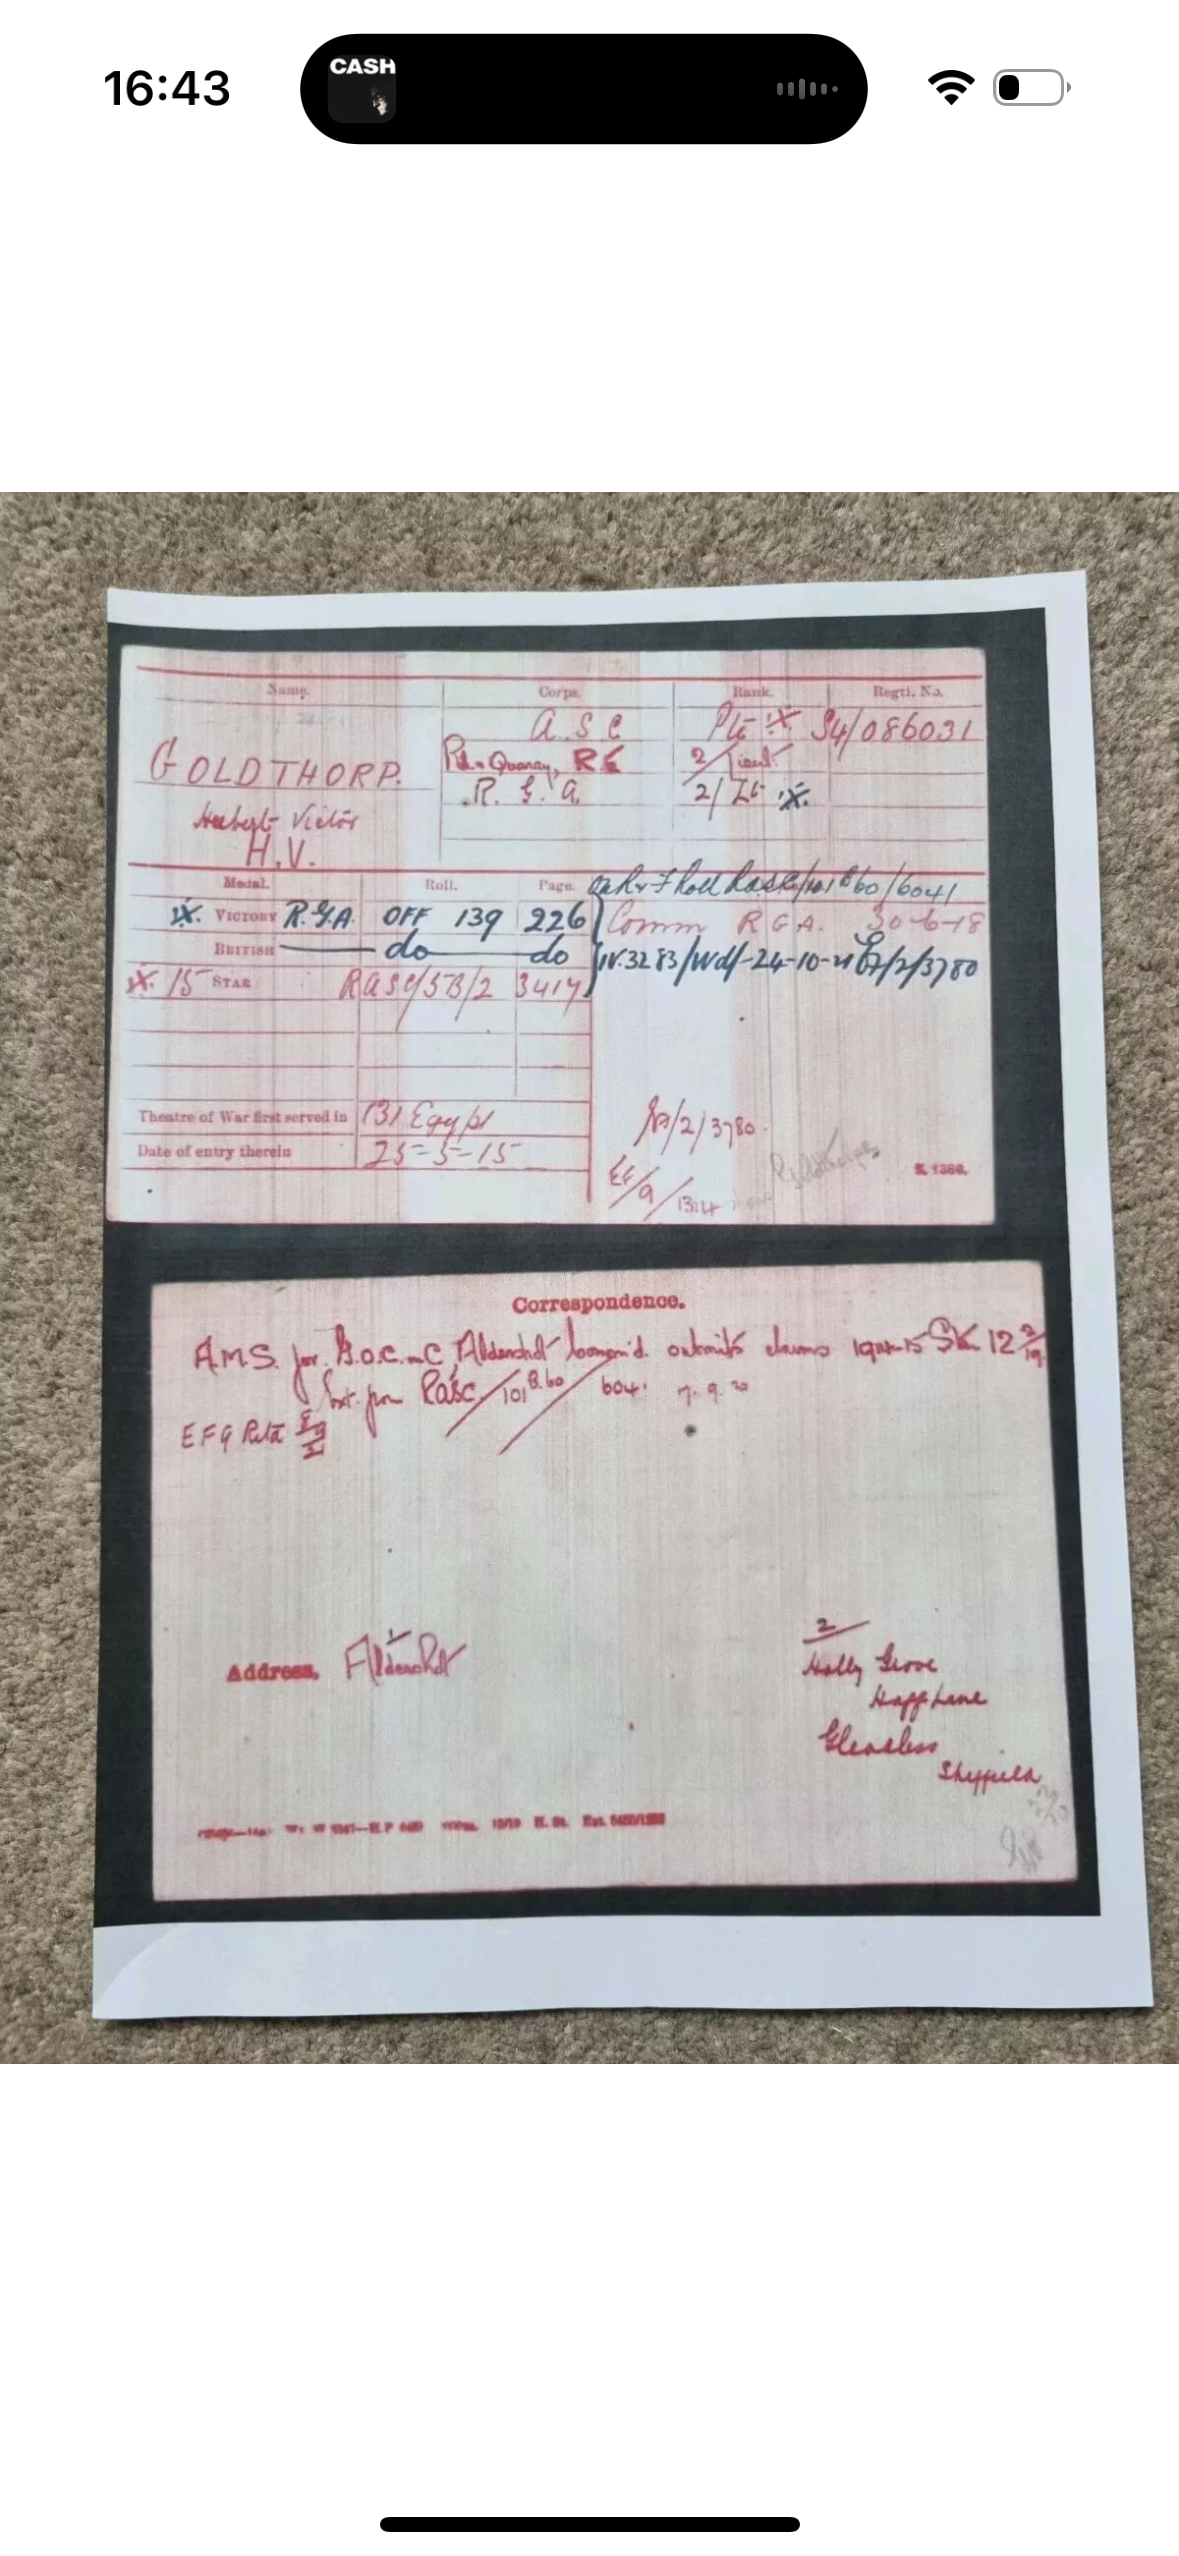 16:43
CASH
Name.
Corps.
Rank.
Regtl. No.
A.S.C
Pte
S4/086031
GOLDTHORP.
Quarry, R E
2/Lieut.
R. G. A.
2/Lt
Herbert Victor
H.V.
Medal.
Roll.
Page.
Roll RASC/101 B60/6041
VICTORY R.G.A. OFF 139 226
Comm R G A. 30-6-18
BRITISH do do
IV.3283/Wd/-24-10-21 /2/3780
15 STAR RASC/5B/2 3417
Theatre of War first served in (3) Egypt
/2/3780
Date of entry therein 25-5-15
/9/
K. 1380.
Correspondence.
A.M.S. for G.O.C. in C. Aldershot Command. submits claims 1914-15 12
for RASC/101 B.60/6041 7.9.20
E F 9
Address. Aldershot
2
Holly Grove
Lane
Gleadless
Sheffield